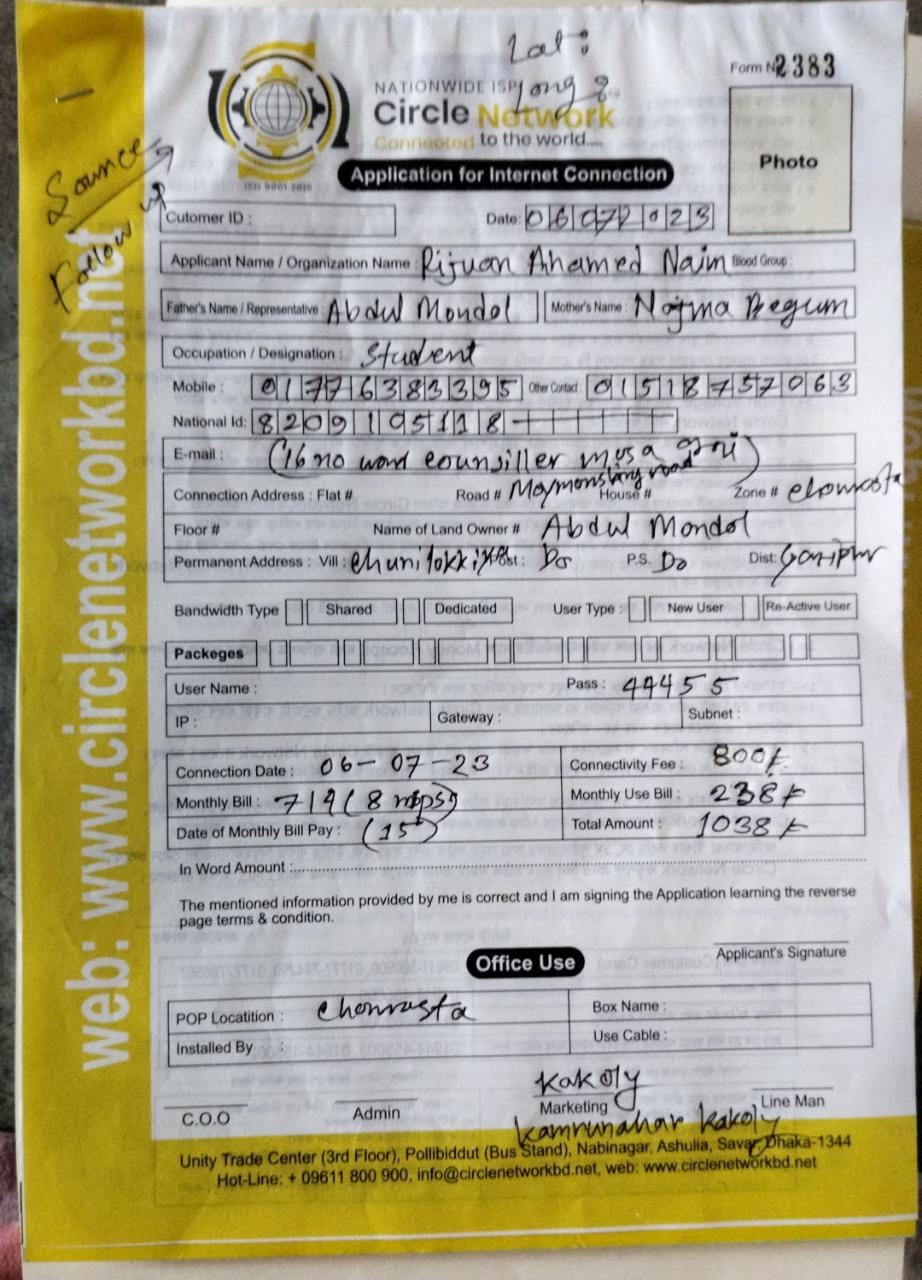 Lat:
Long:
Form No 2383
NATIONWIDE ISP
Circle Network
Connected to the world.....
ISO 9001:2015
Photo
Application for Internet Connection
Source
Follow up
Cutomer ID :
Date: 06072023
Applicant Name / Organization Name : Rijuan Ahamed Naim Blood Group :
Father's Name / Representative : Abdul Mondol Mother's Name : Nojma Begum
Occupation / Designation : Student
Mobile : 01776383395 Other Contact : 01518757063
National Id: 8209195118
E-mail : (16 no word counsiller musa
Connection Address : Flat # Road # Maymonsing road House # Zone # chowrasta
Floor # Name of Land Owner # Abdul Mondol
Permanent Address : Vill : Post : Do P.S. Do Dist: Gazipur
Bandwidth Type Shared Dedicated User Type : New User Re-Active User
Packeges
User Name : Pass : 44455
IP : Gateway : Subnet :
Connection Date : 06-07-23 Connectivity Fee : 800/-
Monthly Bill : 714 (8 mbps) Monthly Use Bill : 238/-
Date of Monthly Bill Pay : (15) Total Amount : 1038/-
In Word Amount :
The mentioned information provided by me is correct and I am signing the Application learning the reverse
page terms & condition.
Applicant's Signature
Office Use
POP Locatition : Chowrasta Box Name :
Installed By : Use Cable :
Kakoly
C.O.O Admin Marketing Line Man
Kamrunahar Kakoly
Unity Trade Center (3rd Floor), Pollibiddut (Bus Stand), Nabinagar, Ashulia, Savar, Dhaka-1344
Hot-Line: + 09611 800 900, info@circlenetworkbd.net, web: www.circlenetworkbd.net
web: www.circlenetworkbd.net